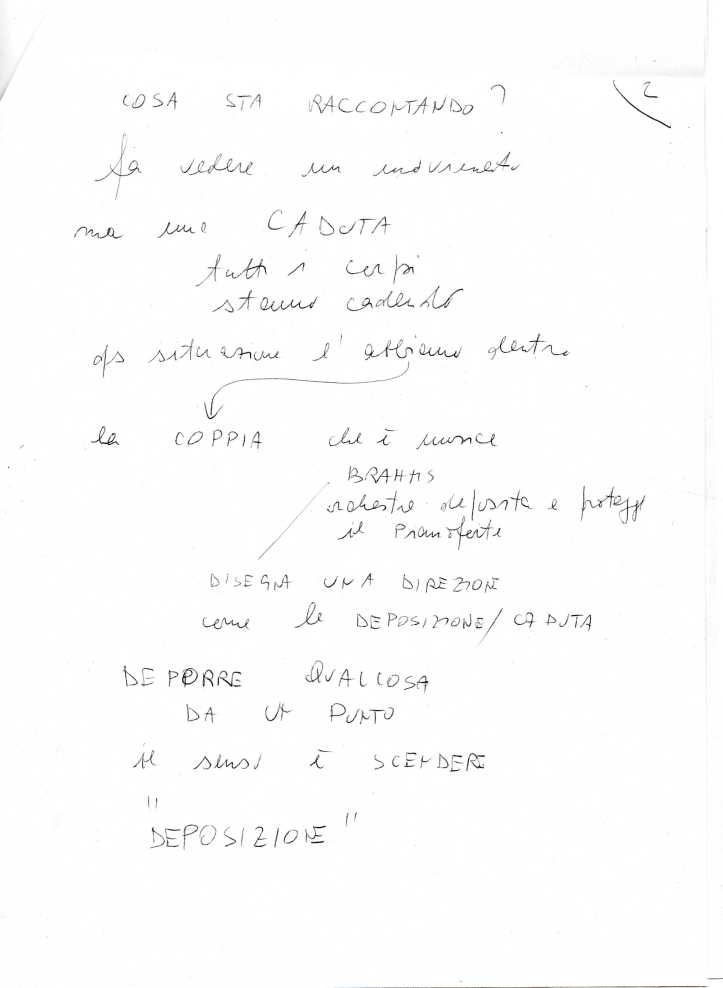 2
COSA STA RACCONTANDO?
fa vedere un movimento
ma una CADUTA
tutti i corpi
stanno cadendo
situazione l'abbiamo dentro
la COPPIA che è
BRAHMS
orchestra deposita e protegge
il Pianoforte
DISEGNA UNA DIREZIONE
come la DEPOSIZIONE/CADUTA
DEPORRE QUALCOSA
DA UN PUNTO
il senso è SCENDERE
"DEPOSIZIONE"